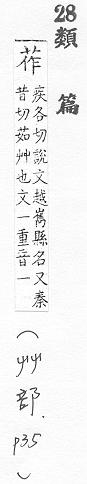 28 類篇
莋
疾各切說文越嶲縣名又秦
昔切茹艸也文一重音一
(艸部. p35)